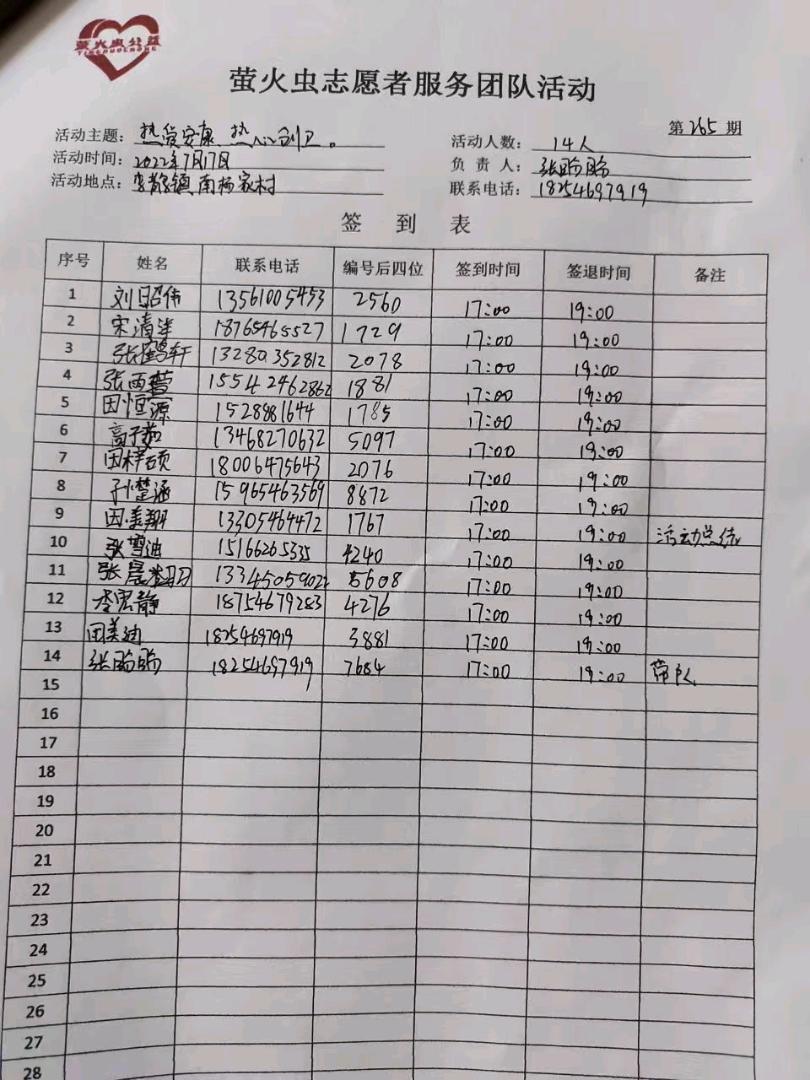 萤火虫公益
YINGHUOCHONG
萤火虫志愿者服务团队活动
第265期
活动主题: 热 安康 热心 卫。
活动人数: 14人
活动时间: 2022年7月17日
负责人: 张
活动地点: 镇南杨家村
联系电话: 18254697919
签到表
序号 姓名 联系电话 编号后四位 签到时间 签退时间 备注
1 刘昭伟 13561005453 2560 17:00 19:00
2 宋清 18765465527 1729 17:00 19:00
3 张鹤轩 13280352812 2078 17:00 19:00
4 张雨萱 15542462862 1881 17:00 19:00
5 田恒源 1528881644 1785 17:00 19:00
6 高子茹 13468270632 5097 17:00 19:00
7 田梓硕 18006475643 2076 17:00 19:00
8 孙楚涵 15965463569 8872 17:00 19:00
9 田 翔 13305464472 1767 17:00 19:00 活动总结
10 张雪迪 15166265335 4240 17:00 19:00
11 张晨 13345059022 5608 17:00 19:00
12 李宏静 18754679283 4276 17:00 19:00
13 田美迪 18254697919 3881 17:00 19:00
14 张 18254697919 7684 17:00 19:00 带队
15
16
17
18
19
20
21
22
23
24
25
26
27
28